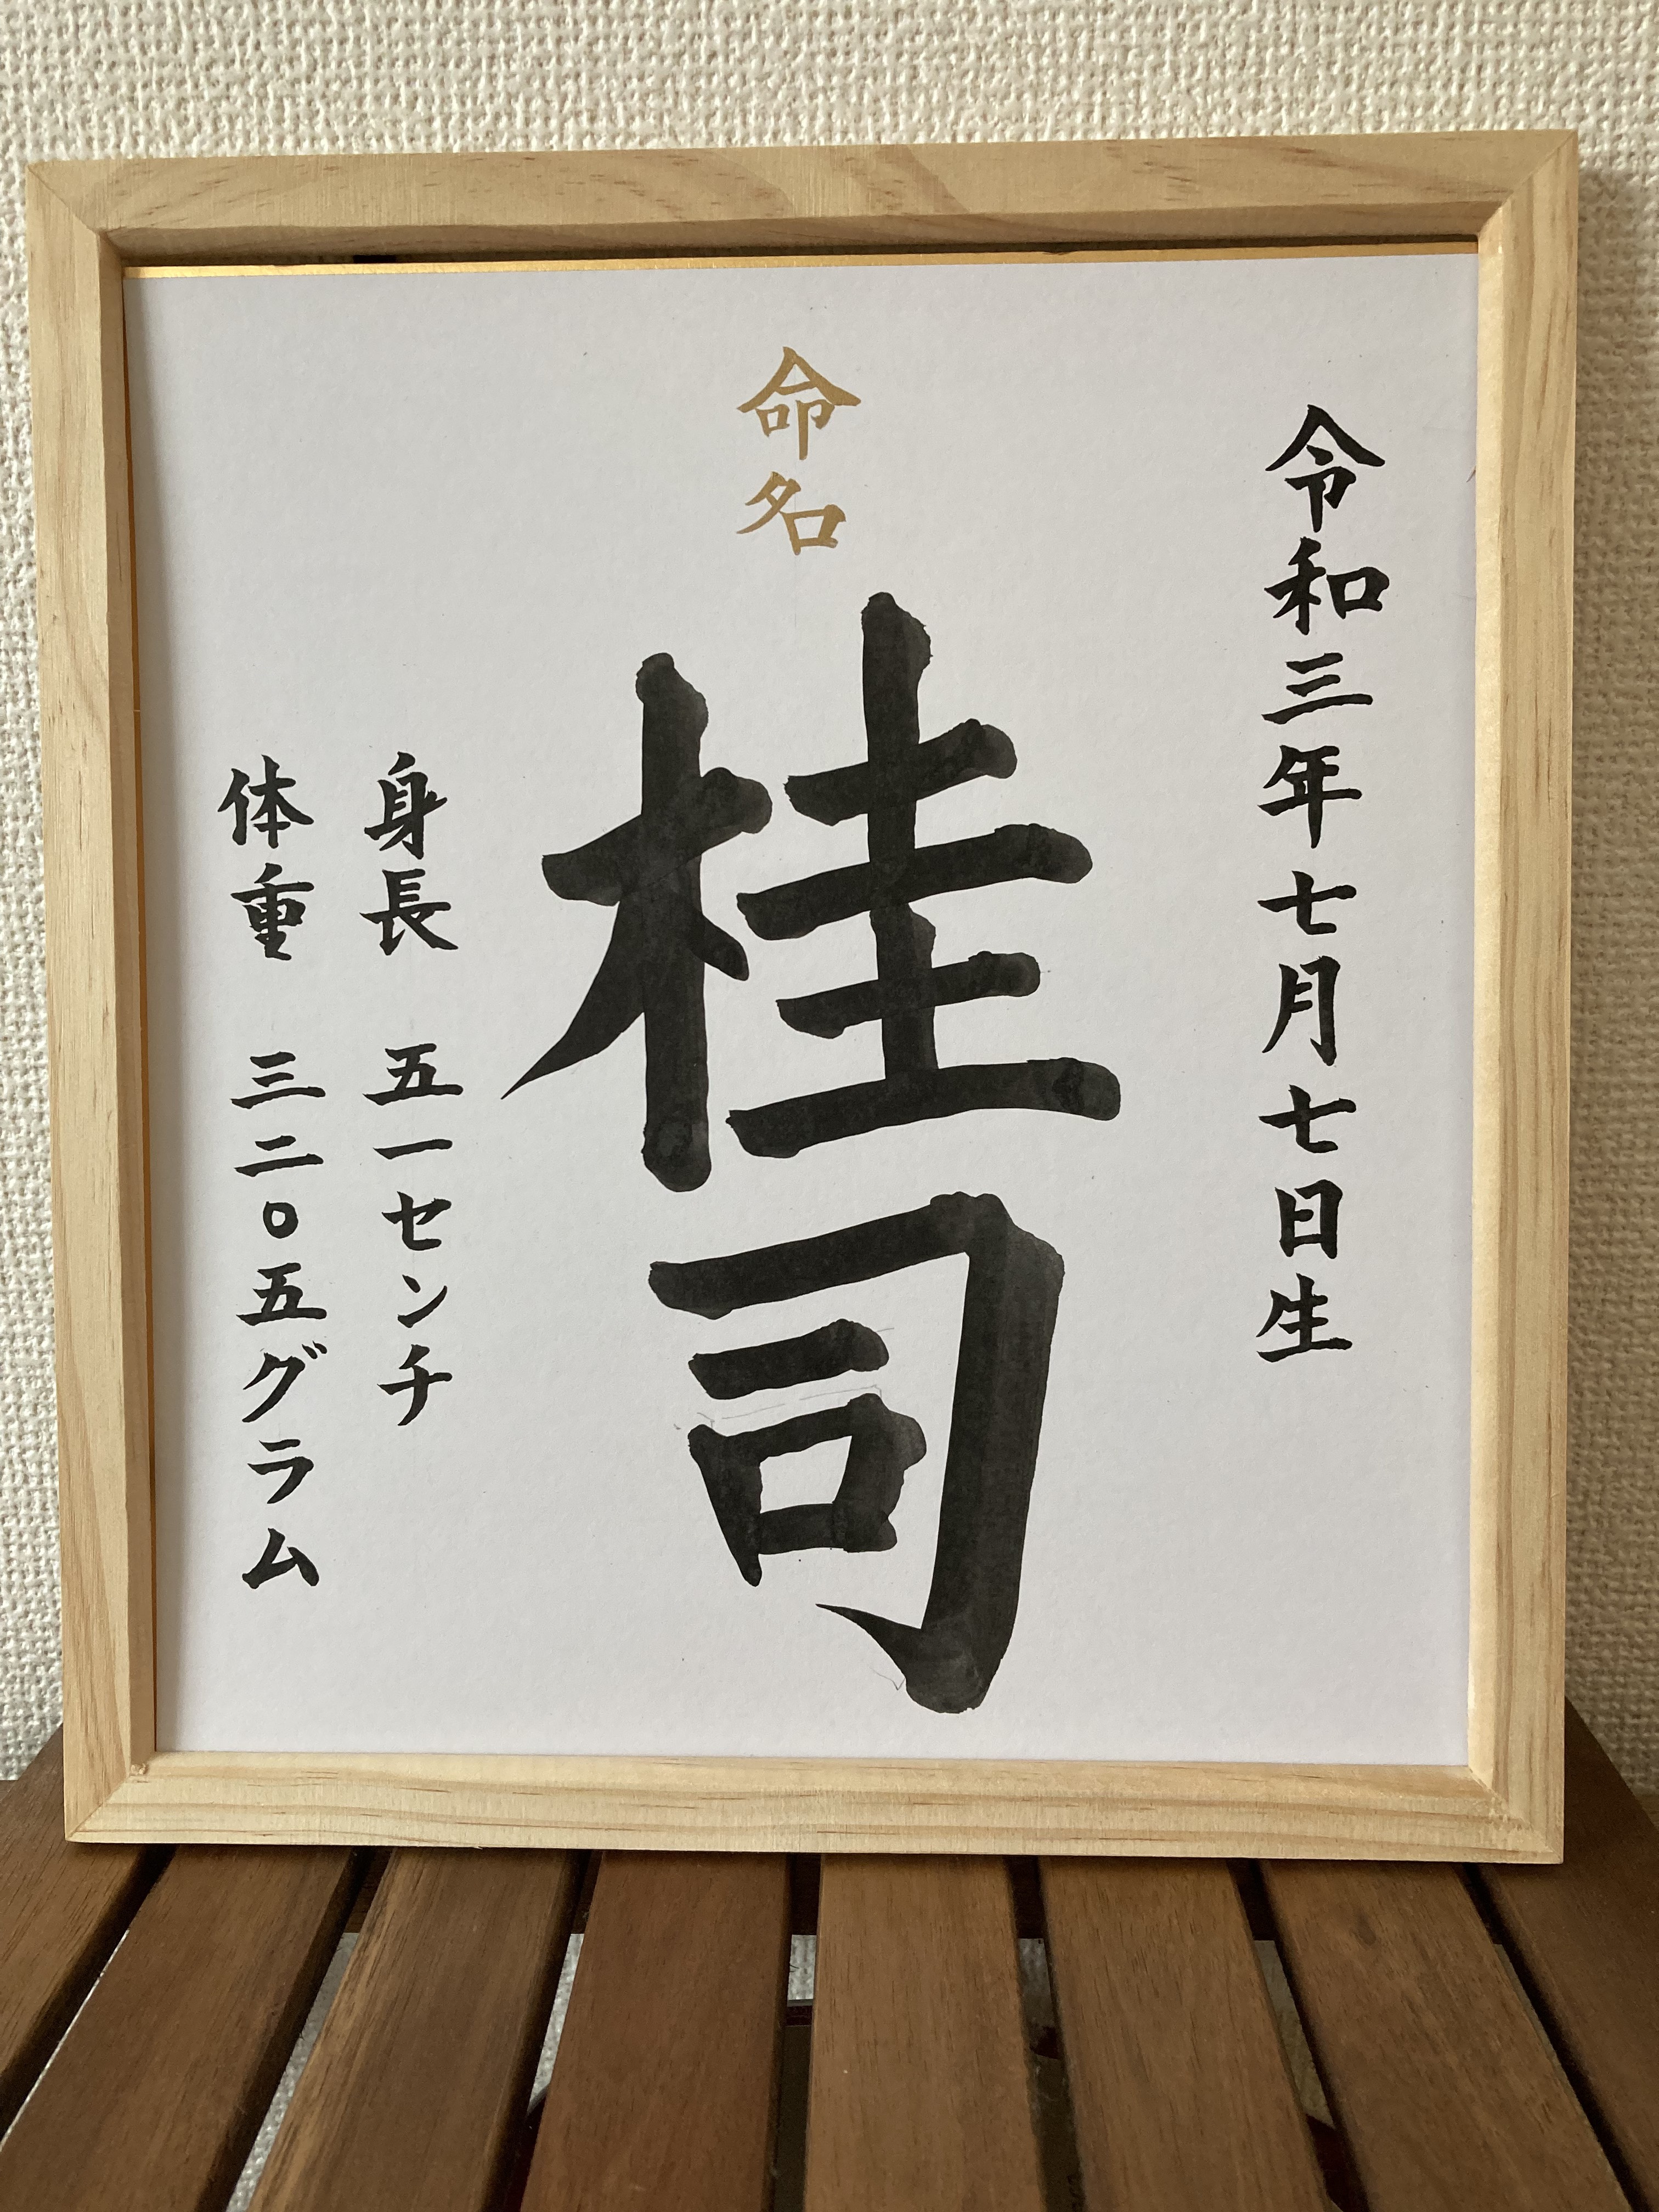 令和三年七月七日生
命名
桂司
身長 五一センチ
体重 三二〇五グラム